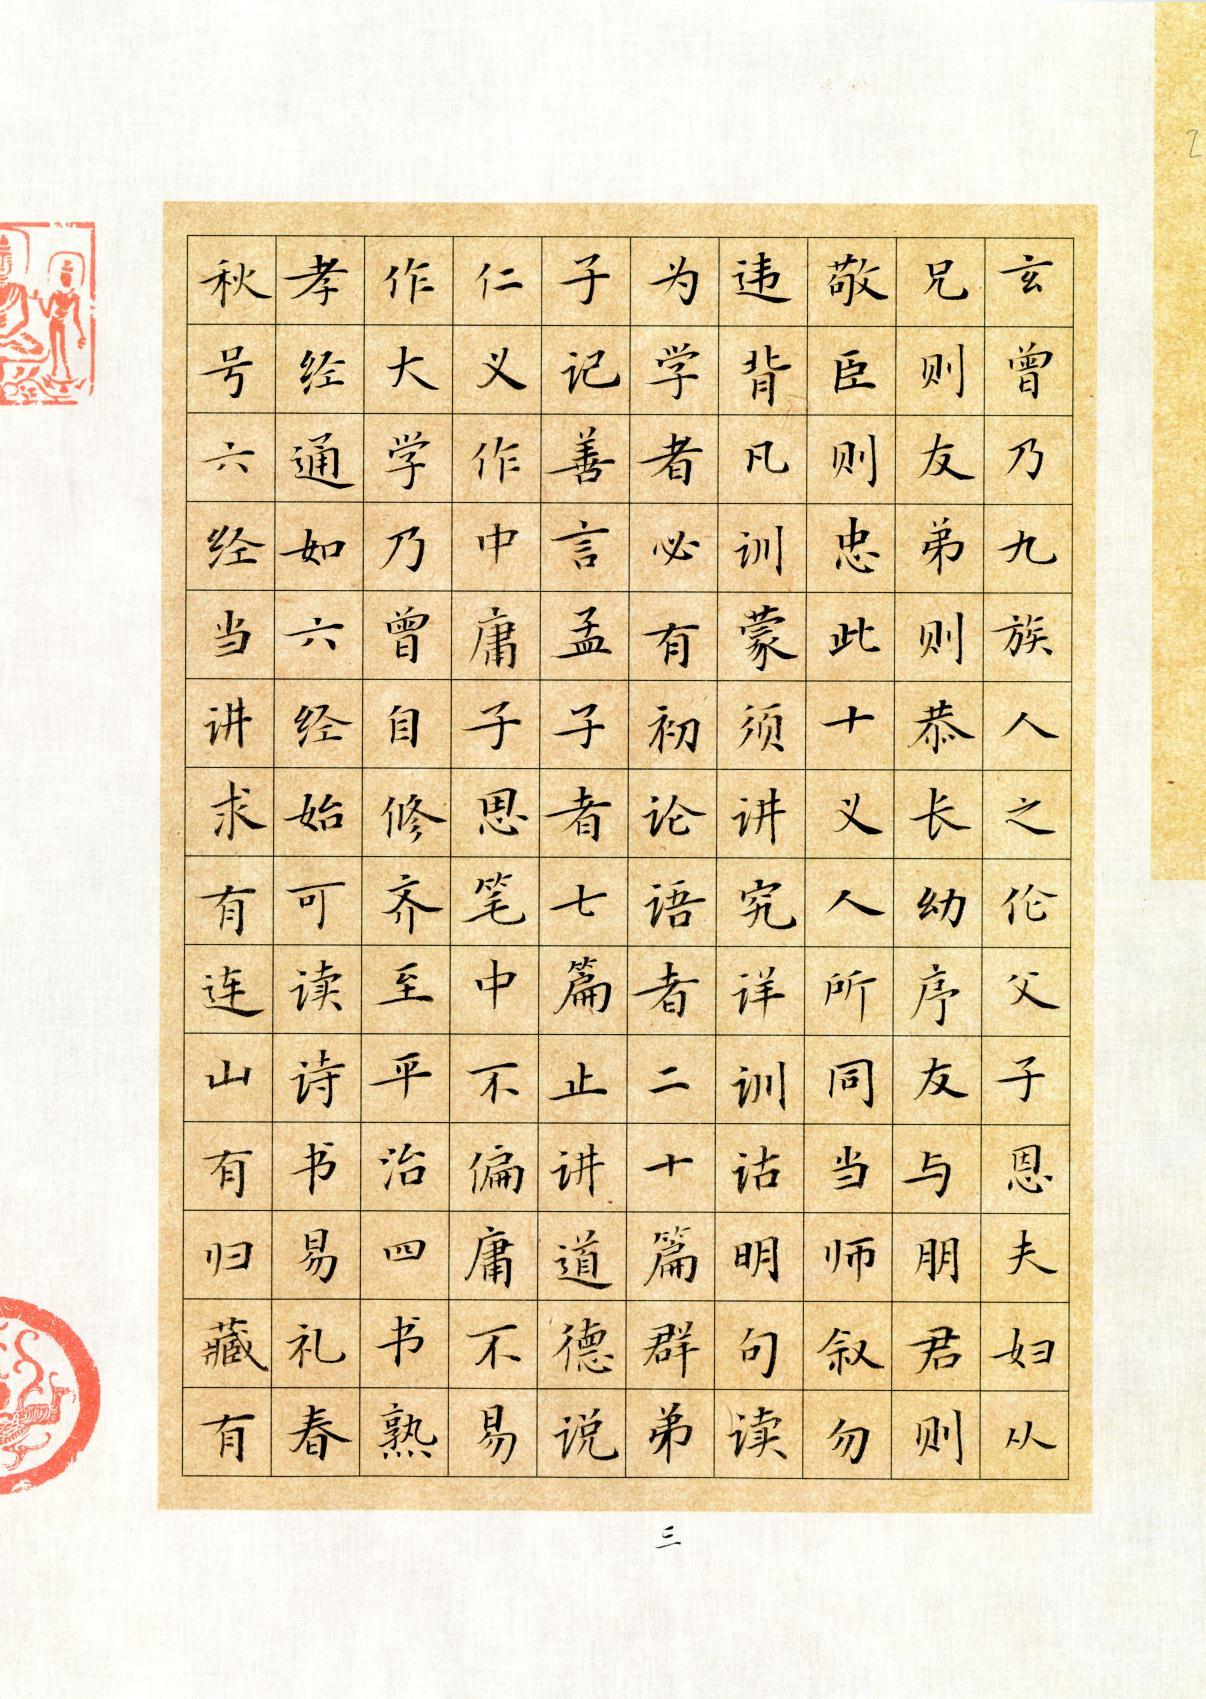 玄曾乃九族人之伦父子恩夫妇从
兄则友弟则恭长幼序友与朋君则
敬臣则忠此十义人所同当师叙勿
违背凡训蒙须讲究详训诂明句读
为学者必有初论语者二十篇群弟
子记善言孟子者七篇止讲道德说
仁义作中庸子思笔中不偏庸不易
作大学乃曾自修齐至平治四书熟
孝经通如六经始可读诗书易礼春
秋号六经当讲求有连山有归藏有
三